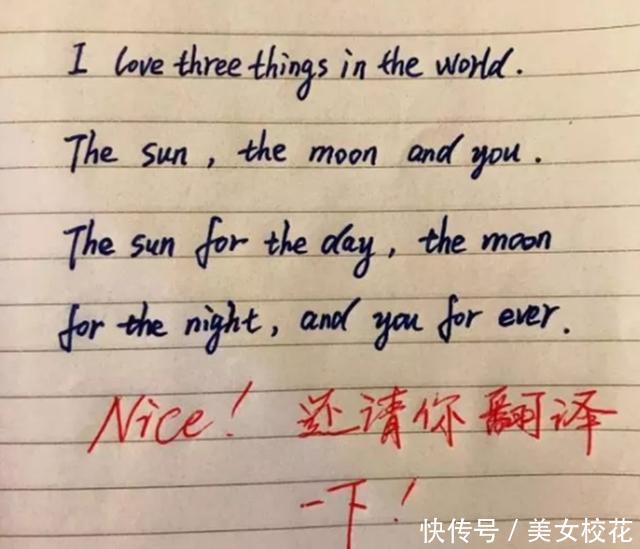 I love three things in the world.
The sun, the moon and you.
The sun for the day, the moon
for the night, and you for ever.
Nice! 还请你翻译
一下!
快传号 / 美女校花